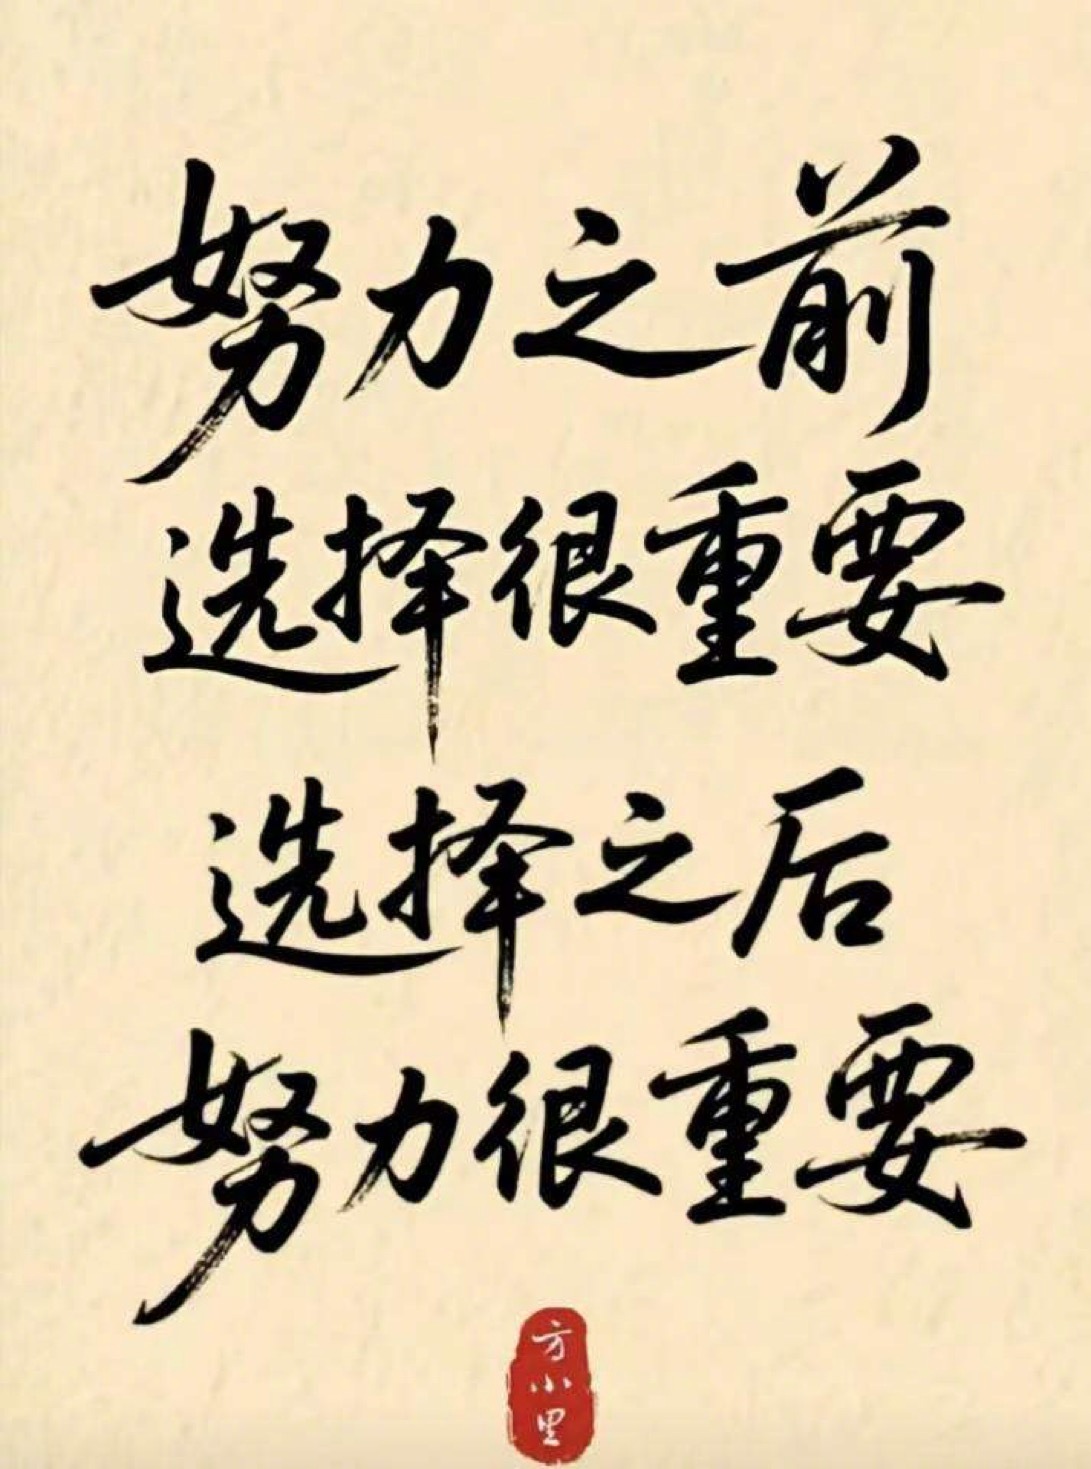 努力之前
选择很重要
选择之后
努力很重要
方小里